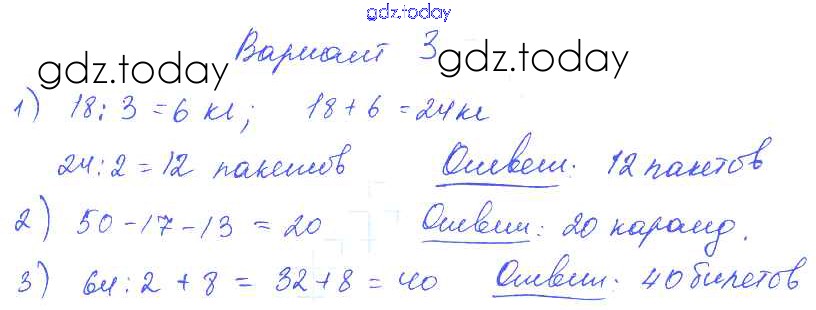 gdz.today
Вариант 3
gdz.today gdz.today
1) 18 : 3 = 6 кг; 18 + 6 = 24 кг
24 : 2 = 12 пакетов Ответ: 12 пакетов
2) 50 - 17 - 13 = 20 Ответ: 20 каранд.
3) 64 : 2 + 8 = 32 + 8 = 40 Ответ: 40 билетов